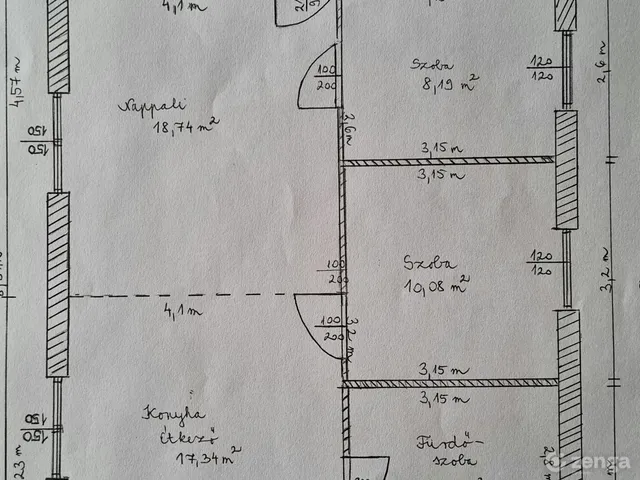 4,1 m
100
200
Szoba
8,19 m²
120
120
2,6 m
4,57 m
Nappali
18,74 m²
150
150
2,6 m
3,15 m
3,15 m
100
200
Szoba
10,08 m²
120
120
3,2 m
4,1 m
100
200
3,2 m
3,15 m
3,15 m
Konyha
étkező
17,34 m²
150
150
Fürdő-
szoba
zenga